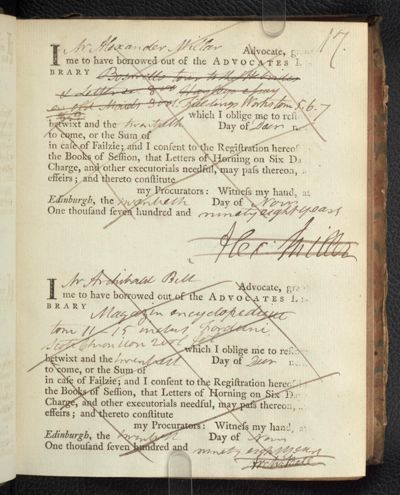 17.
I Mr Alexander Millar Advocate, gr
me to have borrowed out of the ADVOCATES L
BRARY Boswells tour to the Hebrides
Works tom 5. 6. 7
which I oblige me to rest
betwixt and the twentieth Day of Decr n
to come, or the Sum of
in case of Failzie; and I consent to the Registration hereof
the Books of Session, that Letters of Horning on Six D
Charge, and other executorials needful, may pass thereon, a
effeirs; and thereto constitute
my Procurators: Witness my hand, at
Edinburgh, the twentieth Day of Novr
One thousand seven hundred and ninety eight years
Alex Millar
I Mr Archibald Bell Advocate, gra
me to have borrowed out of the ADVOCATES L
BRARY Magazin encyclopedique
tom 11 15
which I oblige me to rest
betwixt and the twentieth Day of Decr n
to come, or the Sum of
in case of Failzie; and I consent to the Registration hereof
the Books of Session, that Letters of Horning on Six Da
Charge, and other executorials needful, may pass thereon,
effeirs; and thereto constitute
my Procurators: Witness my hand, at
Edinburgh, the twentieth Day of Novr
One thousand seven hundred and ninety eight years
Archd Bell